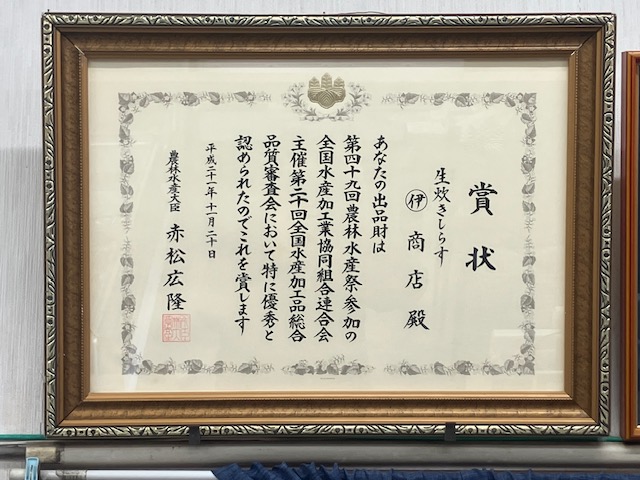 賞状
生炊きしらす
㊥商店殿
あなたの出品財は
第四十九回農林水産祭参加の
全国水産加工業協同組合連合会
主催第二十回全国水産加工品総合
品質審査会において特に優秀と
認められたのでこれを賞します
平成二十一年十一月二十日
農林水産大臣 赤松広隆